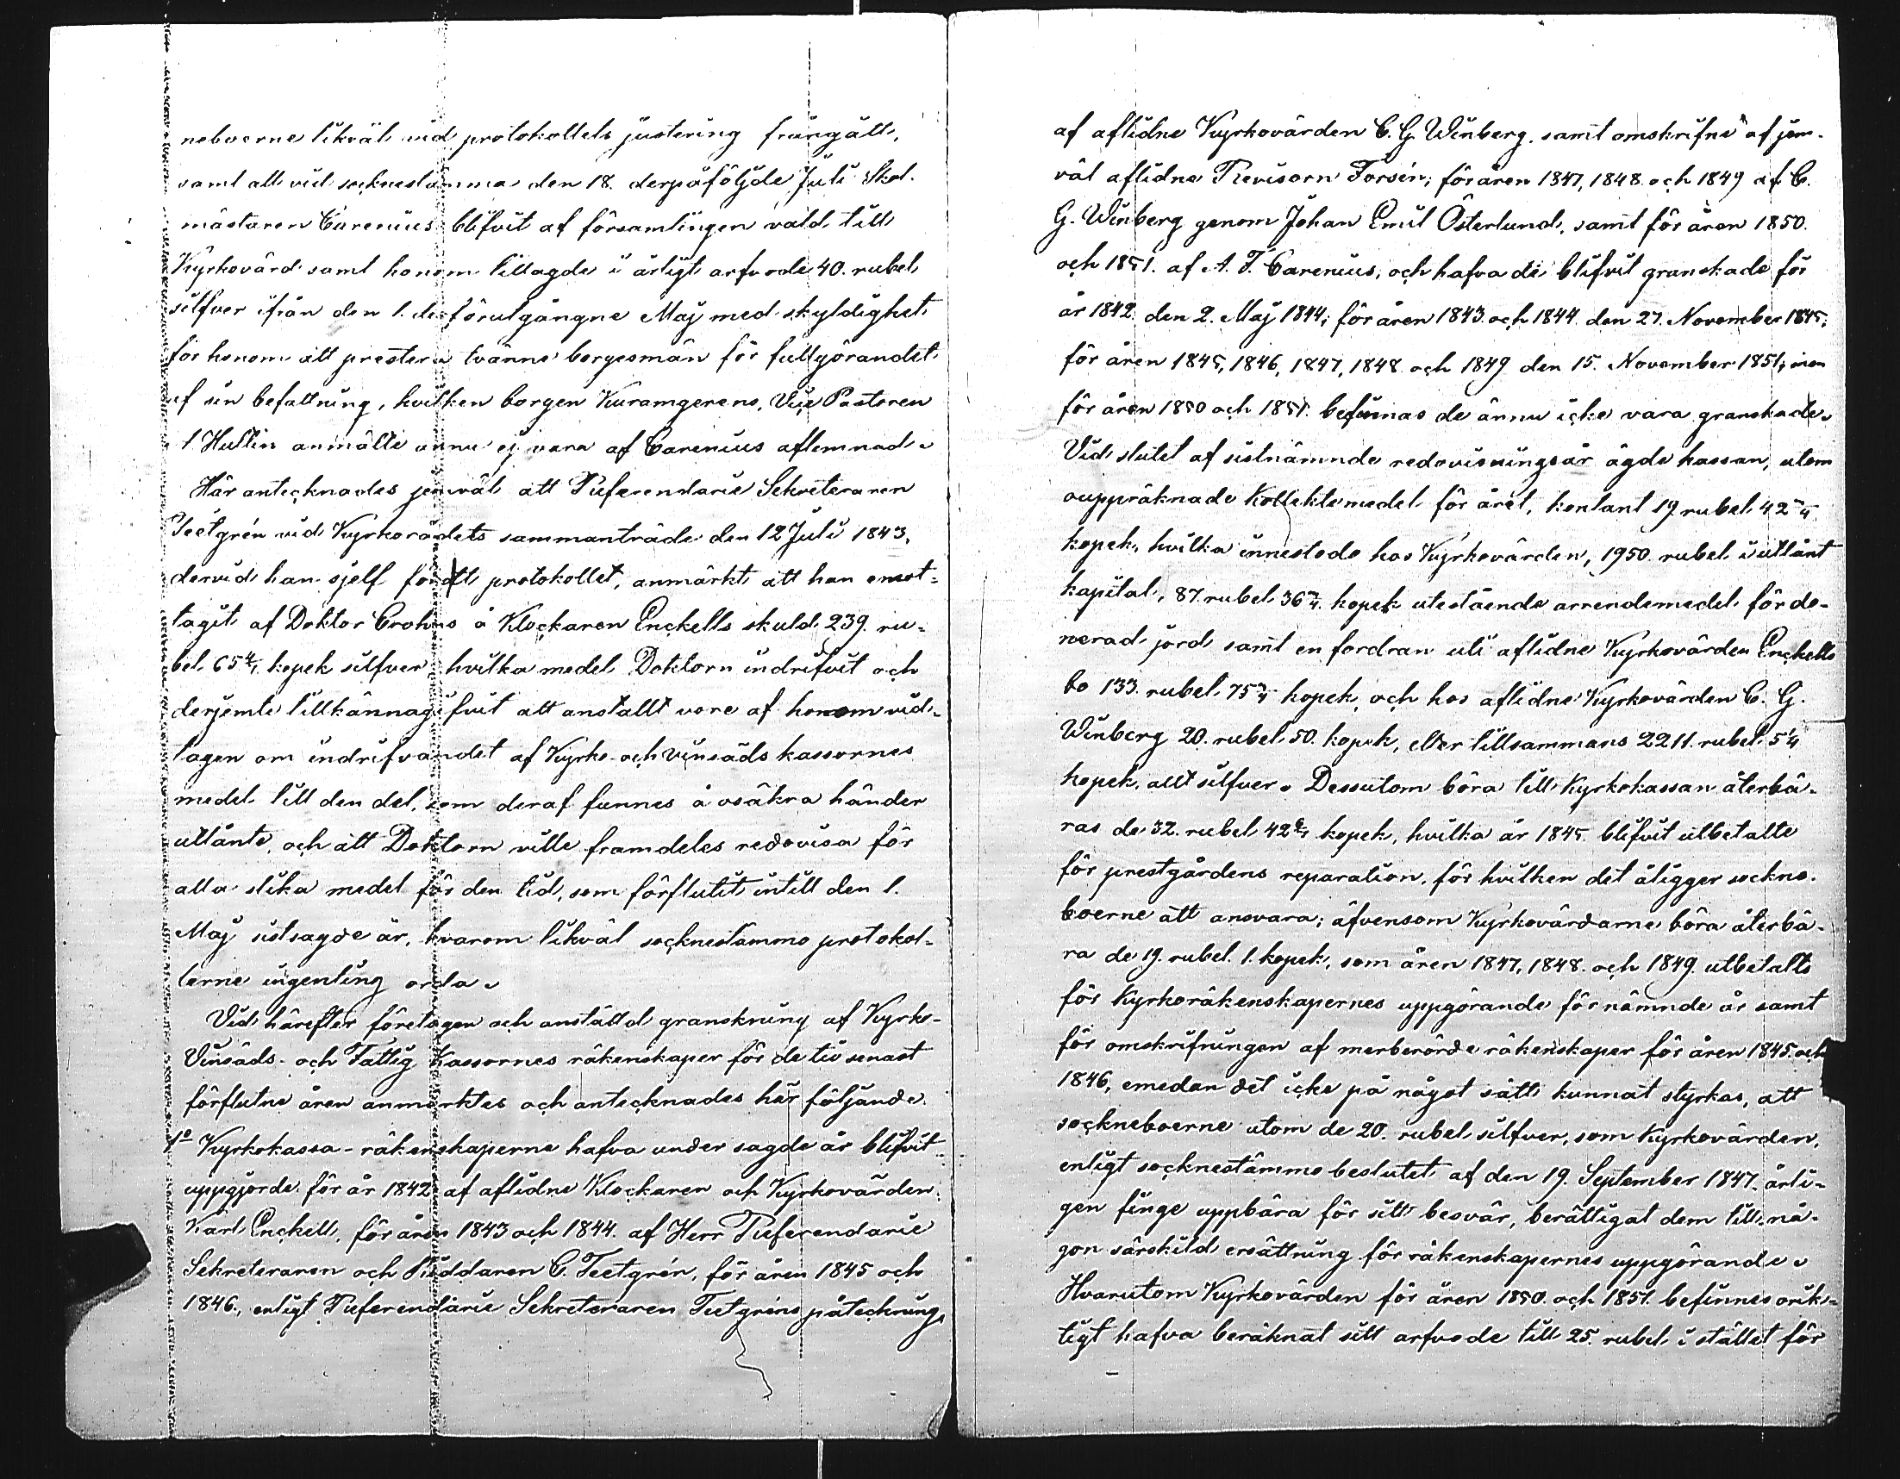 neboerne likväl vid protokollets justering frångått,
samt att vid socknestämma den 18. derpåföljde Juli Skol-
mästaren Carenius blifvit af församlingen vald till
Kyrkovärd samt honom tillagde i årligt arfvode 40. rubel
silfver ifrån den 1. de förutgångne Maj med skyldighet
för honom att prestera tvänne borgesmän för fullgörandet
af sin befattning, hvilken borgen Kuramgerens, Vice Pastoren
Hultin anmälte ännu ej vara af Carenius aflemnad.
Här antecknades jemväl att Referendarie Sekreteraren
Teetgrén vid Kyrkorådets sammanträde den 12 Juli 1843,
dervid han sjelf fördt protokollet, anmärkt att han emot-
tagit af Doktor Crohns å Klockaren Enckells skuld 239. ru-
bel 65 4/7 kopek silfver hvilka medel Doktorn indrifvit och
derjemte tillkännagifvit att anstallt vore af honom vid-
tagen om indrifvandet af Kyrko- och vinsäds kassornes
medel till den del, som deraf funnes å osäkra händer
utlånte, och att Doktorn ville framdeles redovisa för
alla slika medel för den tid, som förflutit intill den 1.
Maj sistsagde år, hvarom likväl socknestämmo protokol-
lerne ingenting orda.
Vid härefter företagen och anställd granskning af Kyrko-
Vinsäds- och Fattig Kassornes räkenskaper för de tio senast
förflutne åren anmärktes och antecknades här följande.
1o Kyrkokassa-räkenskaperne hafva under sagde år blifvit
uppgjorde för år 1842 af aflidne Klockaren och Kyrkovärden
Karl Enckell, för åren 1843 och 1844. af Herr Referendarie
Sekreteraren och Riddaren C. Teetgrén, för åren 1845 och
1846, enligt Referendarie Sekreteraren Teetgréns påteckning,
af aflidne Kyrkovärden C. G. Winberg, samt omskrifne af jem-
väl aflidne Revisorn Forsén; för åren 1847, 1848. och 1849 af C.
G. Winberg genom Johan Emil Österlund, samt för åren 1850.
och 1851. af A. F. Carenius, och hafva de blifvit granskade för
år 1842. den 2. Maj 1844; för åren 1843. och 1844. den 27. November 1845;
för åren 1845, 1846, 1847, 1848. och 1849 den 15. November 1851; men
för åren 1850 och 1851. befinnas de ännu icke vara granskade.
Vid slutet af sistnämnde redovisningsår ägde kassan, utom
ouppräknade Kollektemedel för året, kontant 19 rubel 42
kopek, hvilka innestodo hos Kyrkovärden, 1950. rubel i utlånt
kapital, 87. rubel 36 kopek utestående arrendemedel för do-
nerad jord samt en fordran uti aflidne Kyrkovärden Enckells
bo 133. rubel 75 kopek, och hos aflidne Kyrkovärden C. G.
Winberg 20. rubel 50. kopek, eller tillsammans 2211. rubel 5
kopek, allt silfver. Dessutom böra till Kyrkokassan återbä-
ras de 32. rubel 42 6/7 kopek, hvilka år 1845. blifvit utbetalte
för prestgårdens reparation, för hvilken det åligger sockne-
boerne att ansvara; äfvensom Kyrkovärdarne böra återbä-
ra de 19. rubel 1. kopek, som åren 1847, 1848. och 1849. utbetalts
för Kyrkoräkenskapernes uppgörande för nämnde år samt
för omskrifningen af merberörde räkenskaper för åren 1845. och
1846, emedan det icke på något sätt kunnat styrkas, att
sockneboerne utom de 20. rubel silfver, som Kyrkovärden,
enligt socknestämmo beslutet af den 19. September 1847. årli-
gen finge uppbära för sitt besvär, berättigat dem till nå-
gon särskild ersättning för räkenskapernes uppgörande.
Hvarutom Kyrkovärden för åren 1850. och 1851. befinnes orik-
tigt hafva beräknat sitt arfvode till 25. rubel i stället för